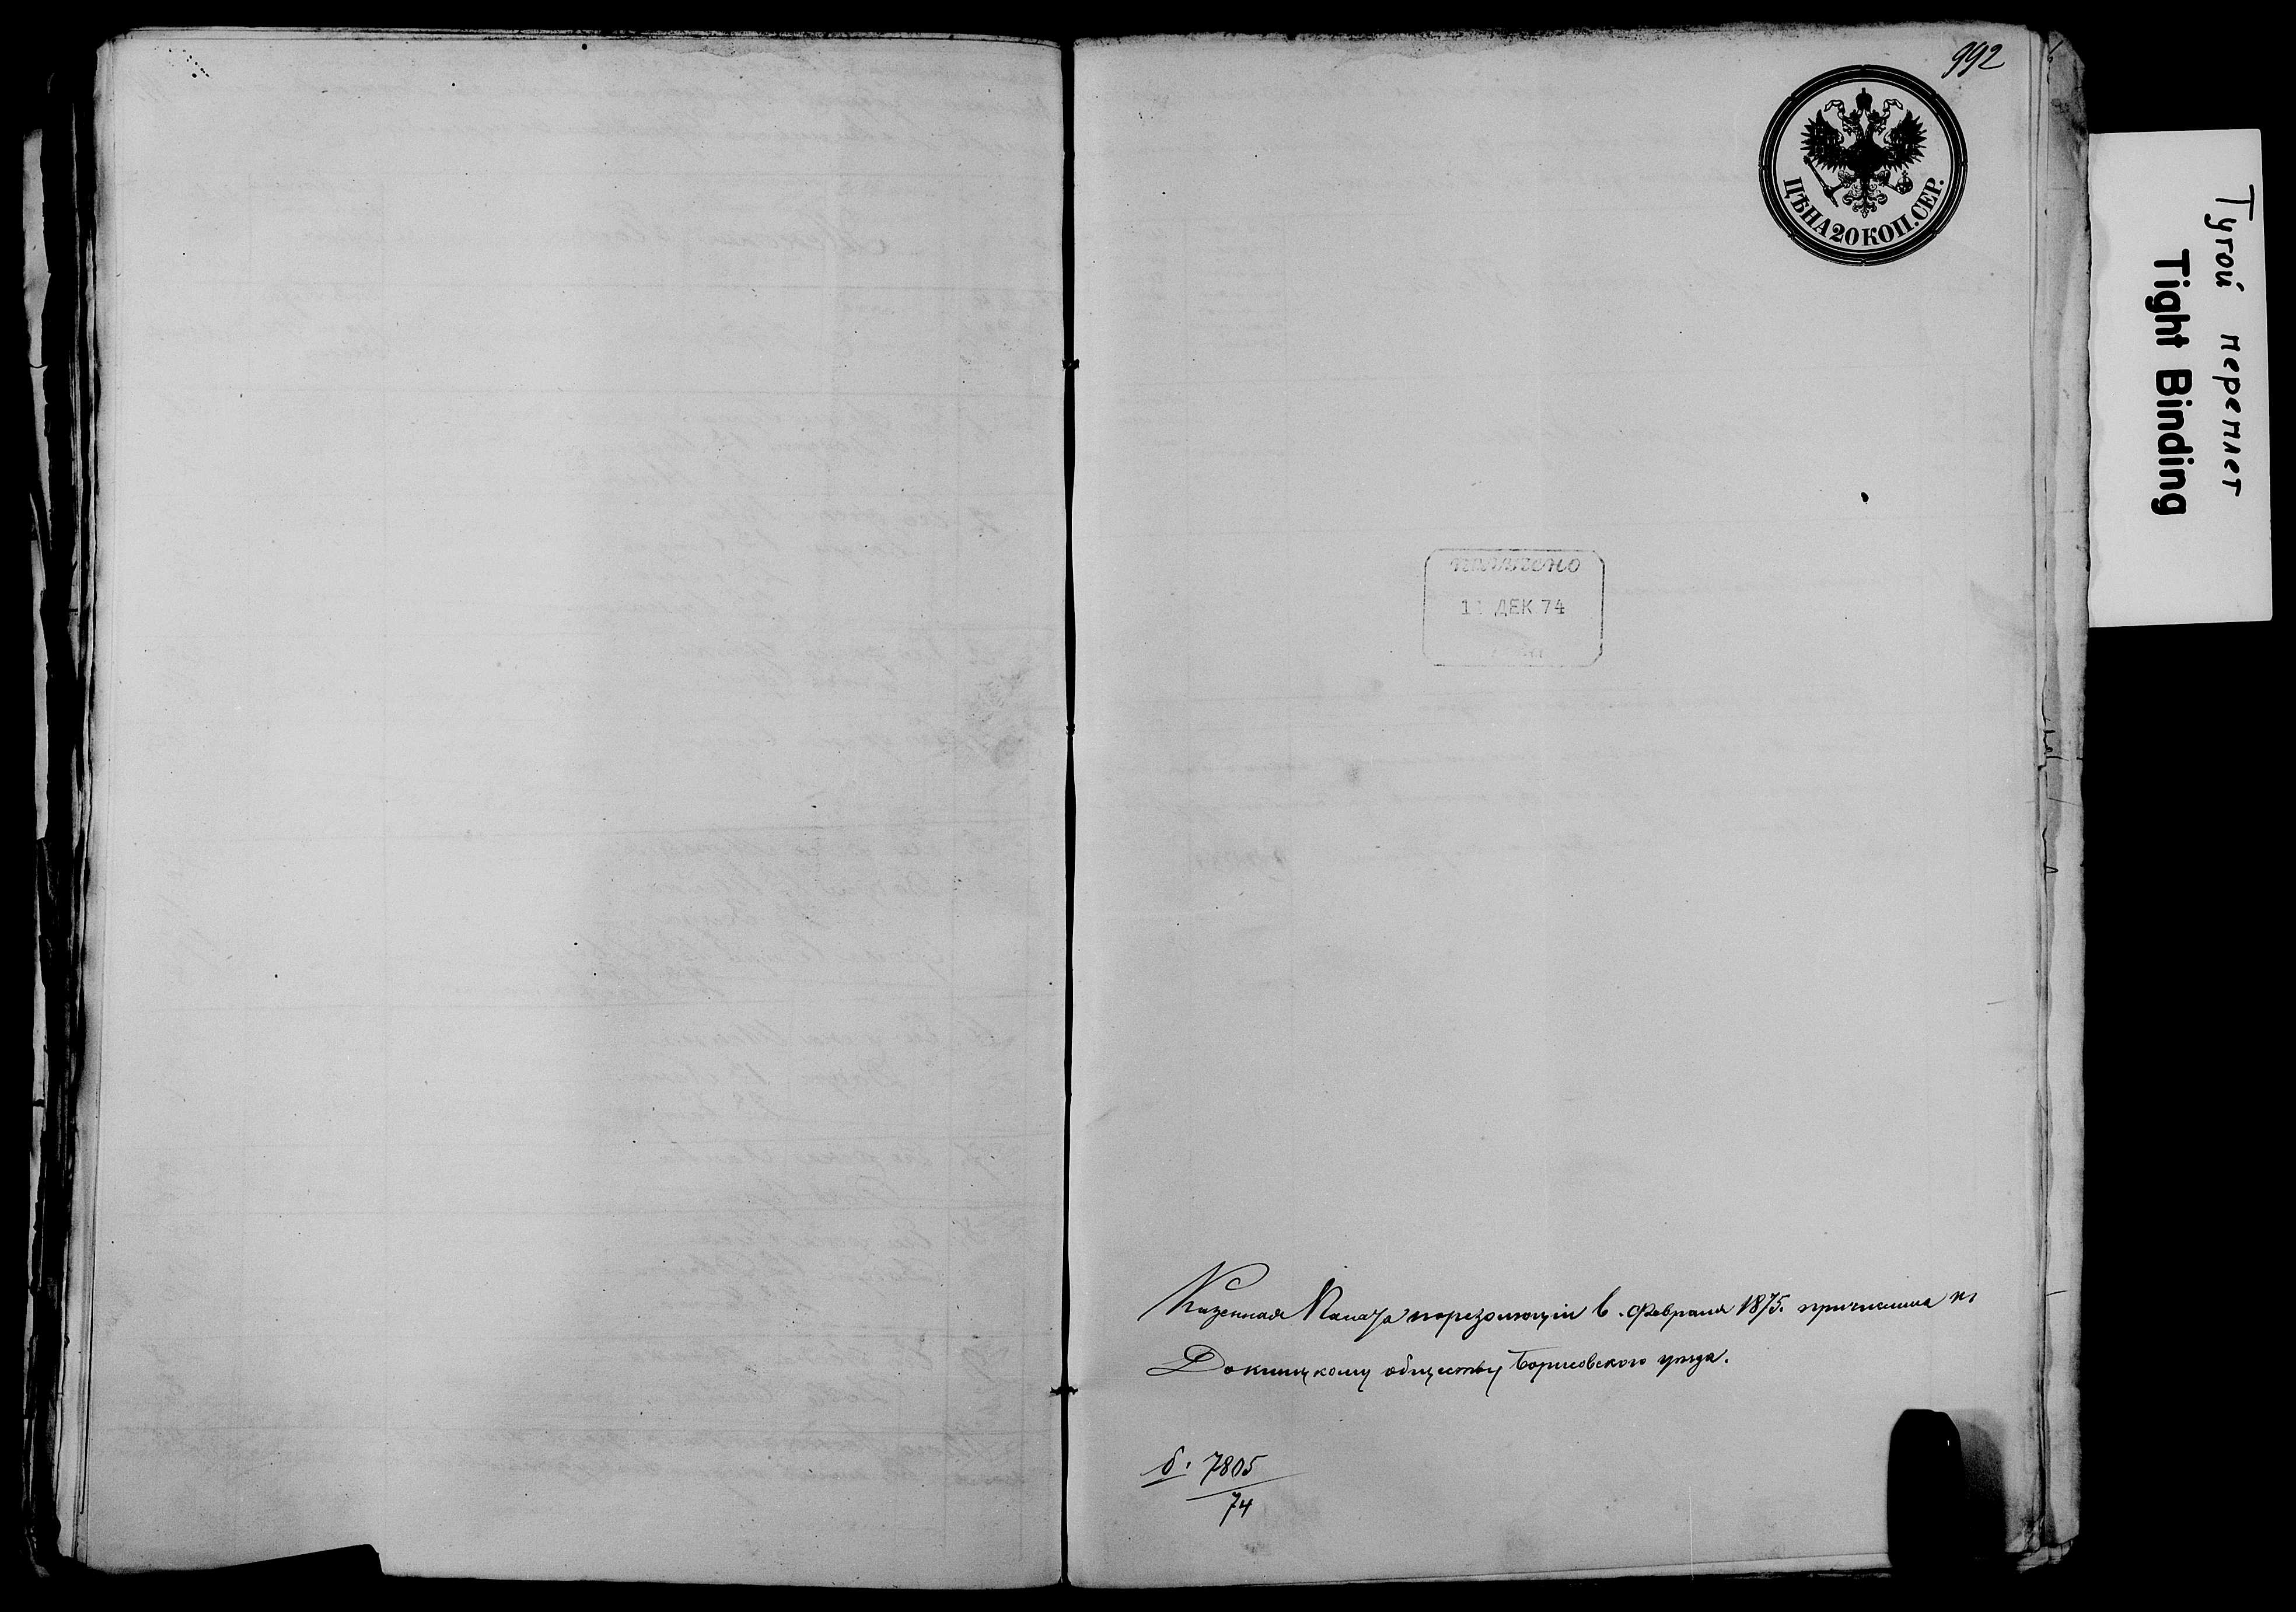 992
ЦѢНА 20 КОП. СЕР.
Тугой переплет
Tight Binding
получено
11 ДЕК 74
Казенная Палата по резолюціи 6. Февраля 1875. причислила къ
Докшицкому обществу Борисовского уѣзда.
б. 7805
74